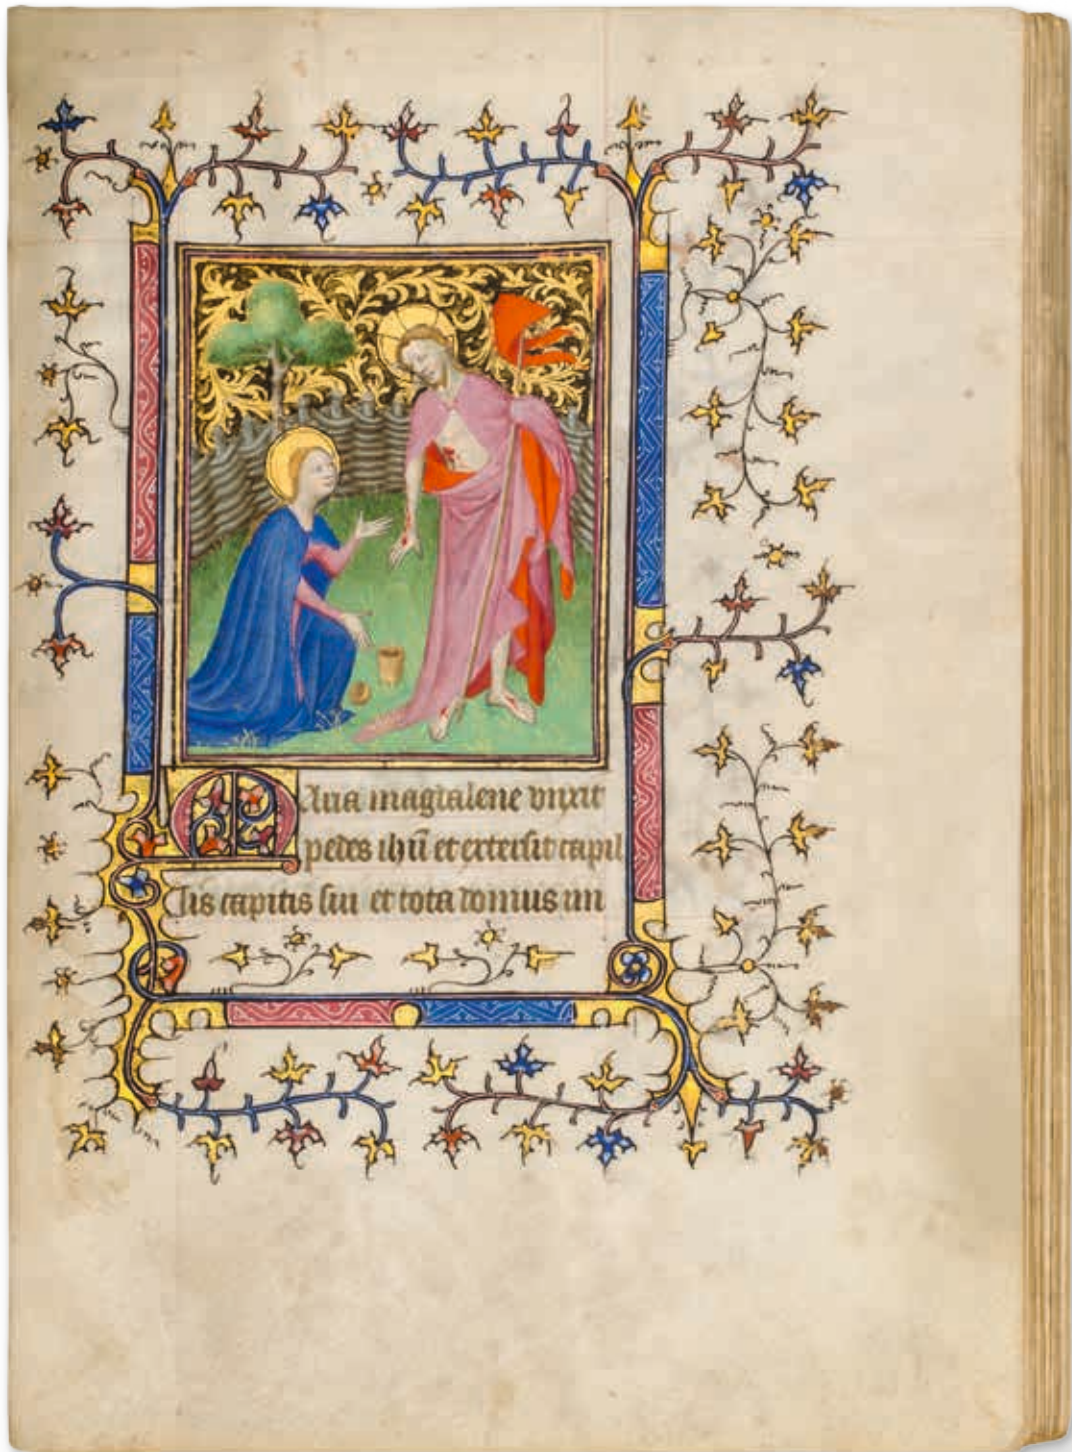 Maria magdalene vnxit
pedes ihū et extersit capil
lis capitis sui et tota domus im